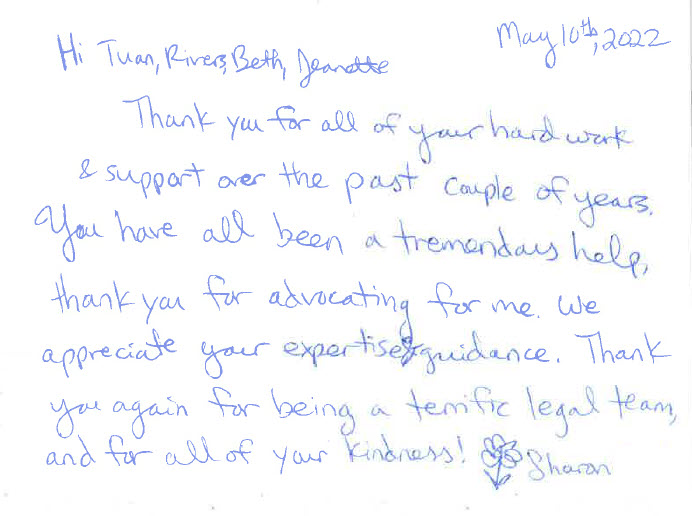 May 10th, 2022
Hi Tuan, Rivers, Beth, Jeanette
Thank you for all of your hard work
& support over the past couple of years.
You have all been a tremendous help,
thank you for advocating for me. We
appreciate your expertise & guidance. Thank
you again for being a terrific legal team,
and for all of your kindness! Sharon